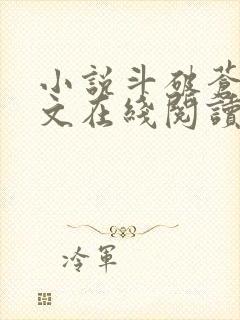 小說斗破蒼
文在綫閱讀
冷軍